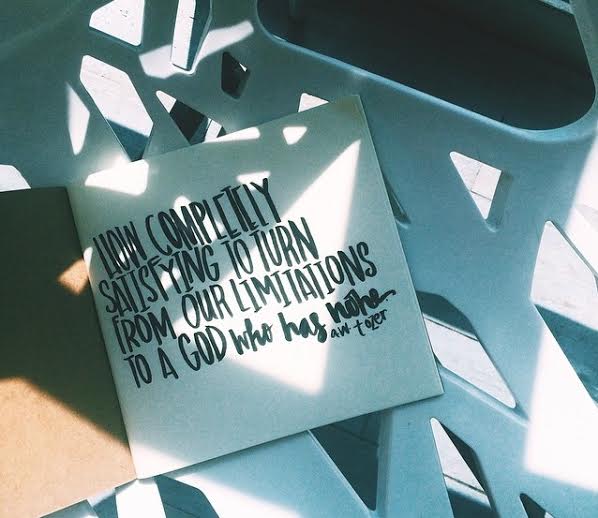 HOW COMPLETELY
SATISFYING TO TURN
FROM OUR LIMITATIONS
TO A GOD who has none
aw tozer